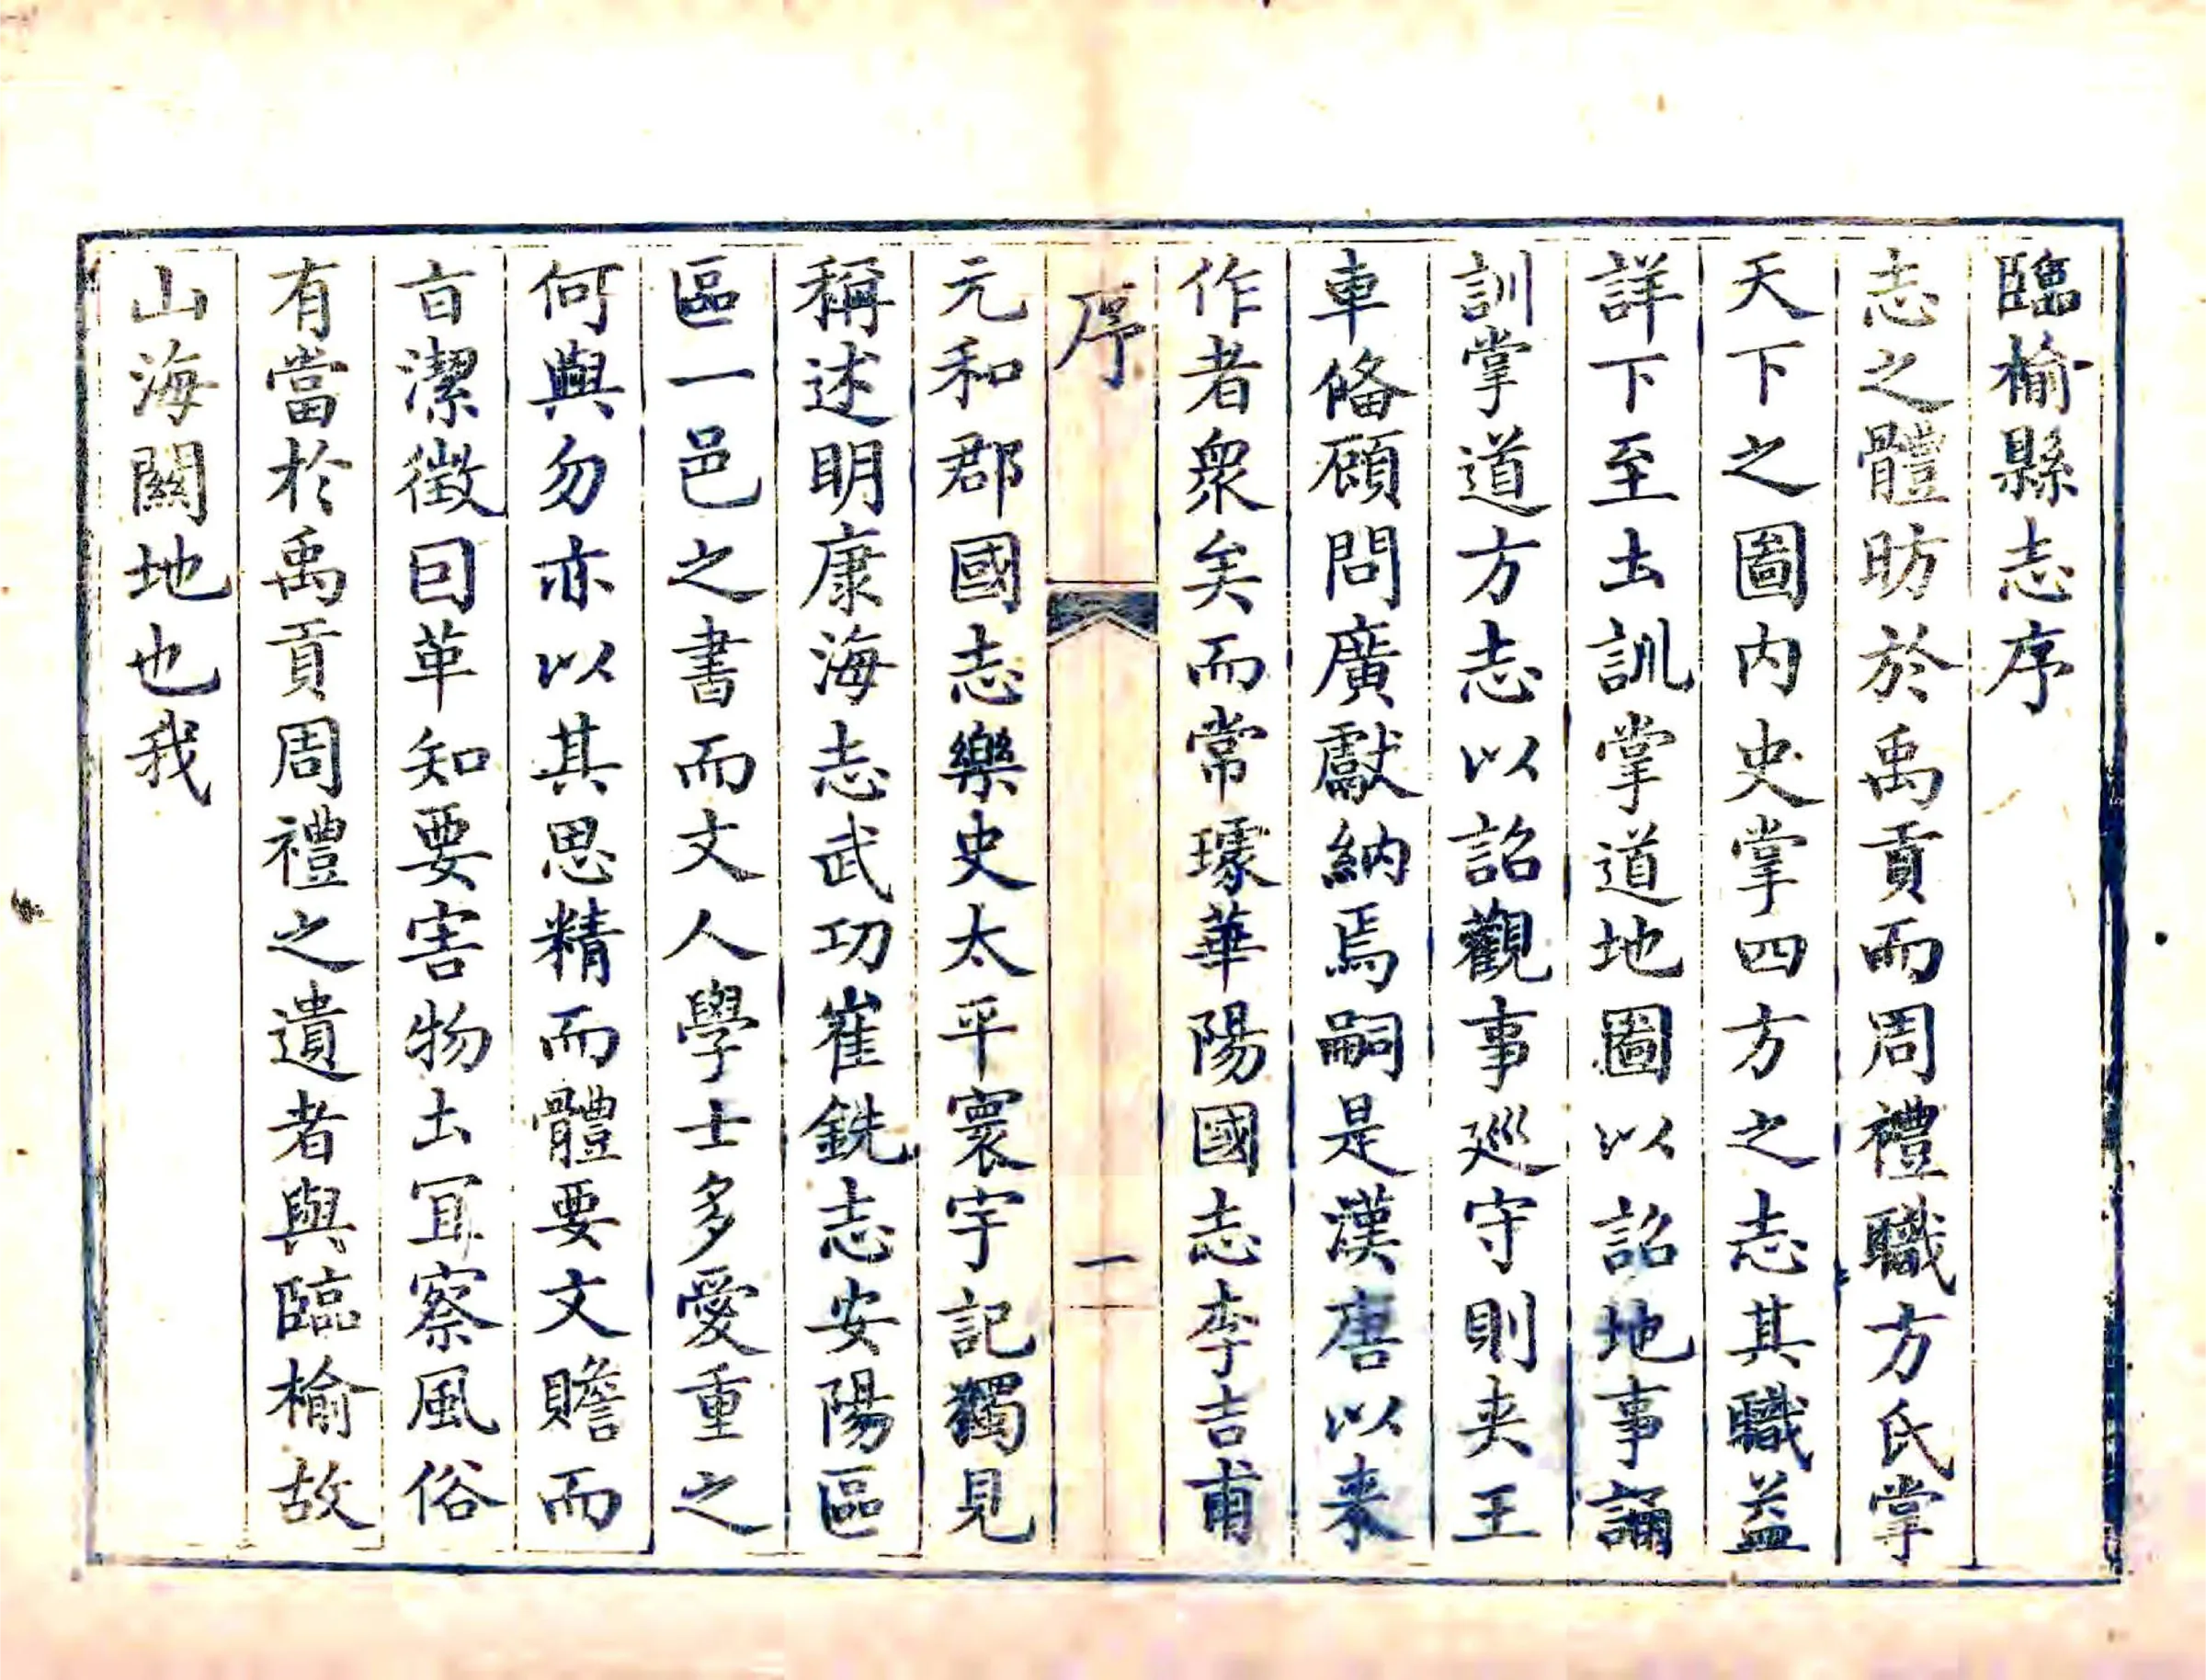 臨榆縣志序
志之體昉於禹貢而周禮職方氏掌
天下之圖內史掌四方之志其職益
詳下至土訓掌道地圖以詔地事誦
訓掌道方志以詔觀事廵守則夾王
車俻顧問廣獻納焉嗣是漢唐以来
作者衆矣而常璩華陽國志李吉甫
序
一
元和郡國志樂史太平寰宇記獨見
稱述明康海志武功崔銑志安陽區
區一邑之書而文人學士多愛重之
何與勿亦以其思精而體要文贍而
㫖潔徴囙革知要害物土冝察風俗
有當於禹貢周禮之遺者與臨榆故
山海關地也我